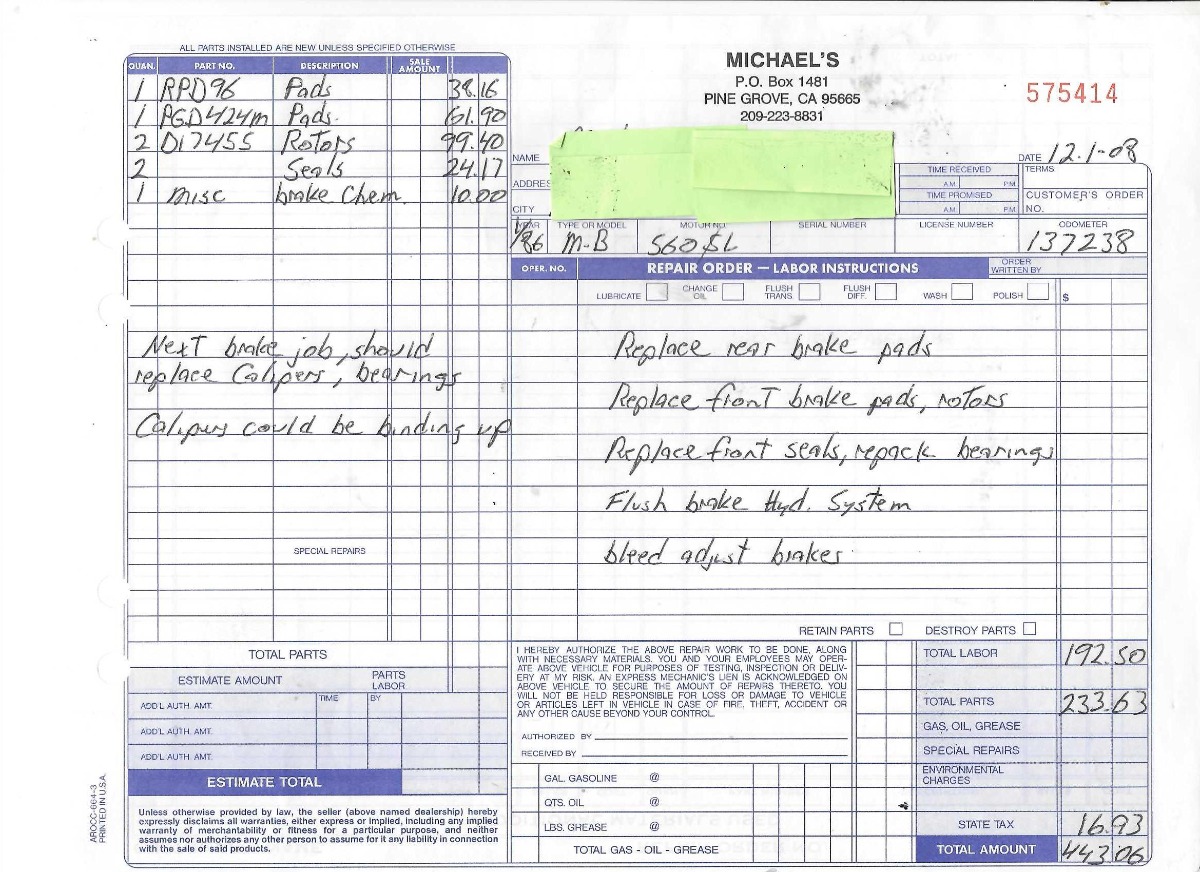 ALL PARTS INSTALLED ARE NEW UNLESS SPECIFIED OTHERWISE
QUAN. PART NO. DESCRIPTION SALE AMOUNT
1 RPD96 Pads 38.16
1 PGD424m Pads 61.90
2 DI7455 Rotors 99.40
2 Seals 24.17
1 misc brake Chem. 10.00
Next brake job, should
replace Calipers, bearings
Calipers could be binding up
SPECIAL REPAIRS
TOTAL PARTS
ESTIMATE AMOUNT PARTS LABOR
ADD'L AUTH. AMT. TIME BY
ADD'L AUTH. AMT.
ADD'L AUTH. AMT.
ESTIMATE TOTAL
Unless otherwise provided by law, the seller (above named dealership) hereby
expressly disclaims all warranties, either express or implied, including any implied
warranty of merchantability or fitness for a particular purpose, and neither
assumes nor authorizes any other person to assume for it any liability in connection
with the sale of said products.
AROCC-664-3
PRINTED IN U.S.A.
MICHAEL'S
P.O. Box 1481
PINE GROVE, CA 95665
209-223-8831
575414
NAME
DATE 12-1-08
ADDRES
TIME RECEIVED A.M. P.M.
TERMS
TIME PROMISED A.M. P.M.
CUSTOMER'S ORDER NO.
CITY
YEAR TYPE OR MODEL MOTOR NO. SERIAL NUMBER LICENSE NUMBER ODOMETER
86 M-B 560SL 137238
OPER. NO. REPAIR ORDER — LABOR INSTRUCTIONS ORDER WRITTEN BY
LUBRICATE CHANGE OIL FLUSH TRANS. FLUSH DIFF. WASH POLISH $
Replace rear brake pads
Replace front brake pads, rotors
Replace front seals, repack bearings
Flush brake Hyd. System
bleed adjust brakes
RETAIN PARTS DESTROY PARTS
I HEREBY AUTHORIZE THE ABOVE REPAIR WORK TO BE DONE, ALONG
WITH NECESSARY MATERIALS. YOU AND YOUR EMPLOYEES MAY OPER-
ATE ABOVE VEHICLE FOR PURPOSES OF TESTING, INSPECTION OR DELIV-
ERY AT MY RISK. AN EXPRESS MECHANIC'S LIEN IS ACKNOWLEDGED ON
ABOVE VEHICLE TO SECURE THE AMOUNT OF REPAIRS THERETO. YOU
WILL NOT BE HELD RESPONSIBLE FOR LOSS OR DAMAGE TO VEHICLE
OR ARTICLES LEFT IN VEHICLE IN CASE OF FIRE, THEFT, ACCIDENT OR
ANY OTHER CAUSE BEYOND YOUR CONTROL.
AUTHORIZED BY
RECEIVED BY
GAL. GASOLINE @
QTS. OIL @
LBS. GREASE @
TOTAL GAS - OIL - GREASE
TOTAL LABOR 192.50
TOTAL PARTS 233.63
GAS, OIL, GREASE
SPECIAL REPAIRS
ENVIRONMENTAL CHARGES
STATE TAX 16.93
TOTAL AMOUNT 443.06